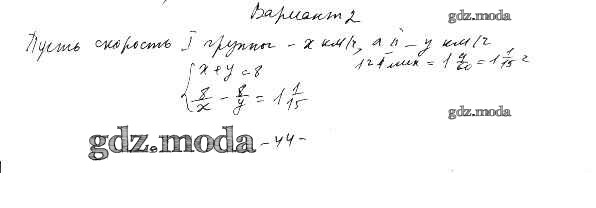 Вариант 2
gdz.moda
Пусть скорость I группы - x км/ч, а II - y км/ч
x + y = 8
1 ч 4 мин = 1 4/60 = 1 1/15 ч
8/x - 8/y = 1 1/15
gdz.moda
gdz.moda
- 44 -